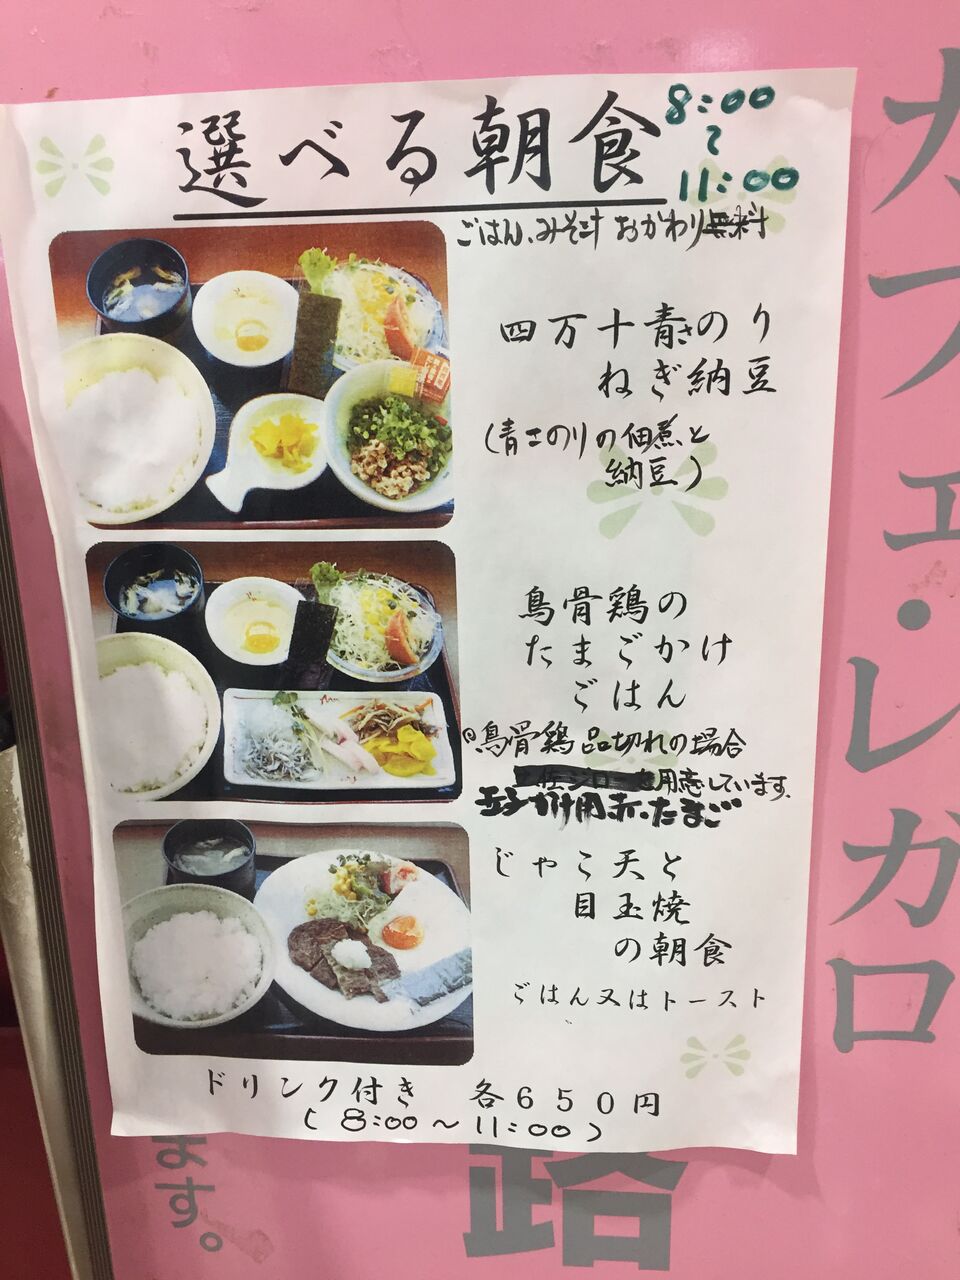 選べる朝食
8:00
〜
11:00
ごはん、みそ汁 おかわり無料
四万十青さのり
ねぎ納豆
(青さのりの佃煮と
納豆)
烏骨鶏の
たまごかけ
ごはん
烏骨鶏品切れの場合
を用意しています。
玉子かけ用赤たまご
じゃこ天と
目玉焼
の朝食
ごはん又はトースト
ドリンク付き 各650円
(8:00〜11:00)
カフェ・レガロ
ます。
路